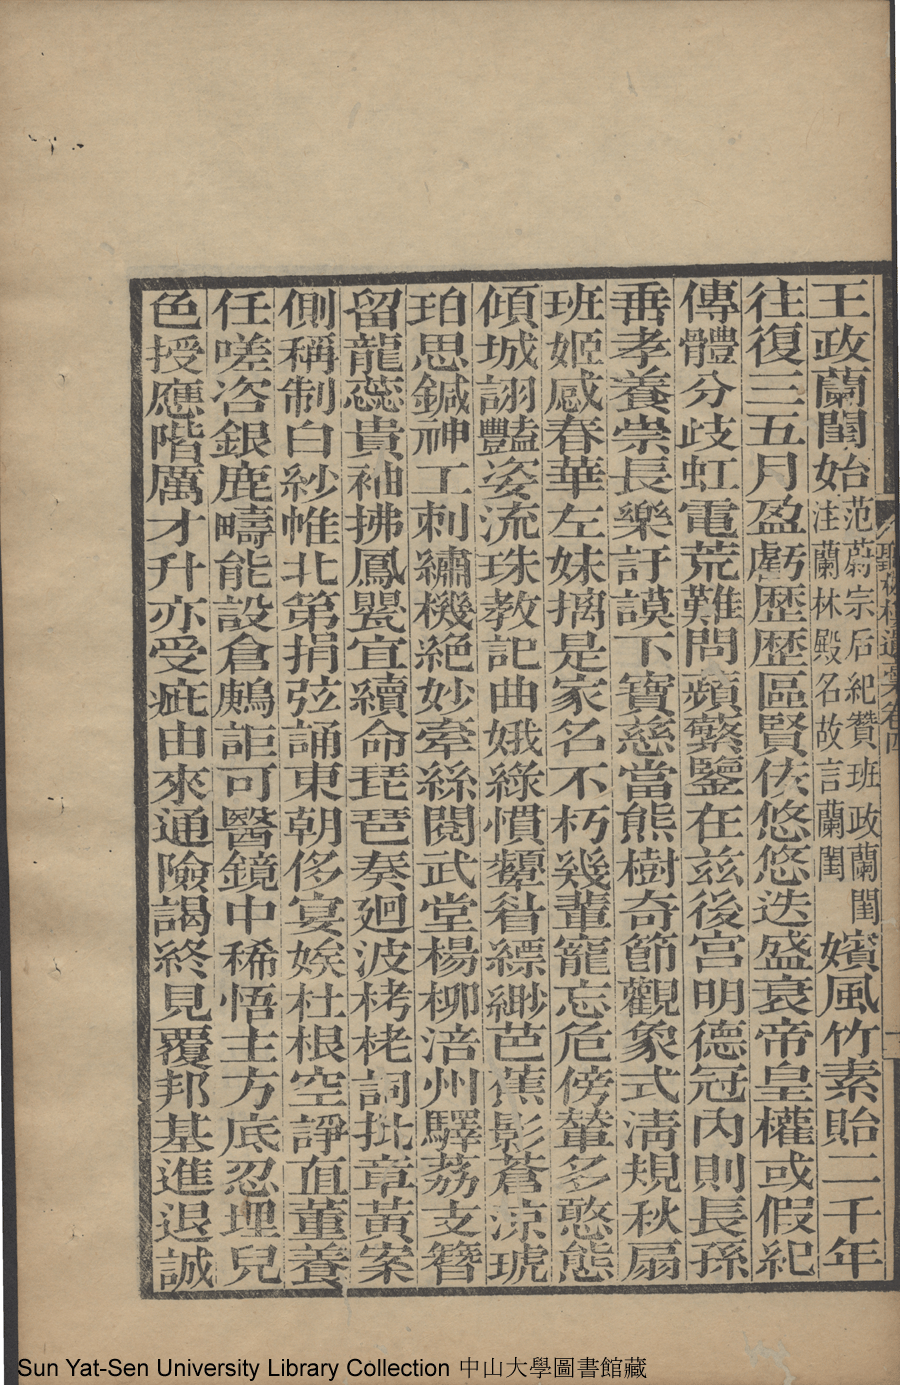 王政蘭閨始范蔚宗后紀贊班政蘭閨注蘭林殿名故言蘭閨嬪風竹素貽二千年
往復三五月盈虧歷歷區賢佞悠悠迭盛衰帝皇權或假紀
傳體分歧虹電荒難問蘋蘩鑒在兹後宮明德冠內則長孫
垂孝養崇長樂訏謨下寶慈當熊樹奇節觀象式淸規秋扇
班姬感春華左妹摛是家名不朽幾輩寵忘危傍輦多憨態
傾城詡豔姿流珠教記曲娥綠慣顰眉縹緲芭蕉影蒼涼琥
珀思鍼神工刺繡機絕妙牽絲閱武堂楊柳涪州驛荔支簪
留龍蕊貴袖拂鳳甖宜續命琵琶奏廻波栲栳詞批章黃案
側稱制白紗帷北第捐弦誦東朝侈宴娭杜根空諍直董養
任嗟咨銀鹿疇能設倉鷛詎可醫鏡中稀悟主方底忍埋兒
色授應階厲才升亦受疵由來通險謁終見覆邦基進退誠
卷四
Sun Yat-Sen University Library Collection 中山大學圖書館藏